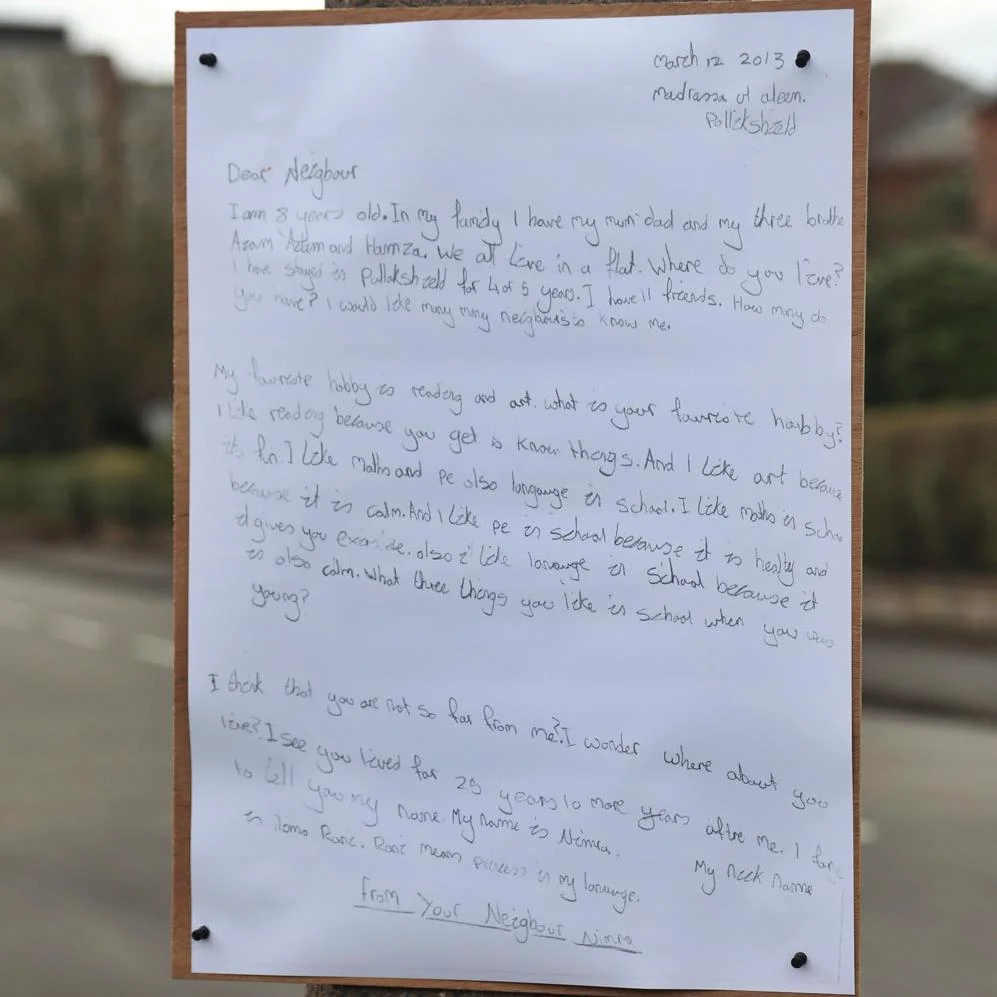 March 12 2013
Madrassa of aleem.
Pollokshield
Dear Neigbour
I am 8 years old. In my family I have my mum dad and my three brothe
Azam Azam and Hamza. We all live in a flat. Where do you live?
I have stayed in Pollokshield for 4 or 5 years. I have 11 friends. How many do
you have? I would like many many neigbours to know me.
My favroite hobby is reading and art. what is your favroite hobby?
I like reading because you get is know things. And I like art because
its fun. I like maths and pe also langauge in school. I like maths in scho
because it is calm. And I like pe in school because it is healty and
it gives you exersise. also i like lanauge in school because it
is also calm. What three things you like in school when you was
young?
I think that you are not so far from me? I wonder where about you
live? I see you lived for 25 years 10 more years aftre me. I forg
to tell you my name. My name is Nimra. My nick name
is Rani. Rani means princess in my lanauge.
from Your Neigbour Nimra